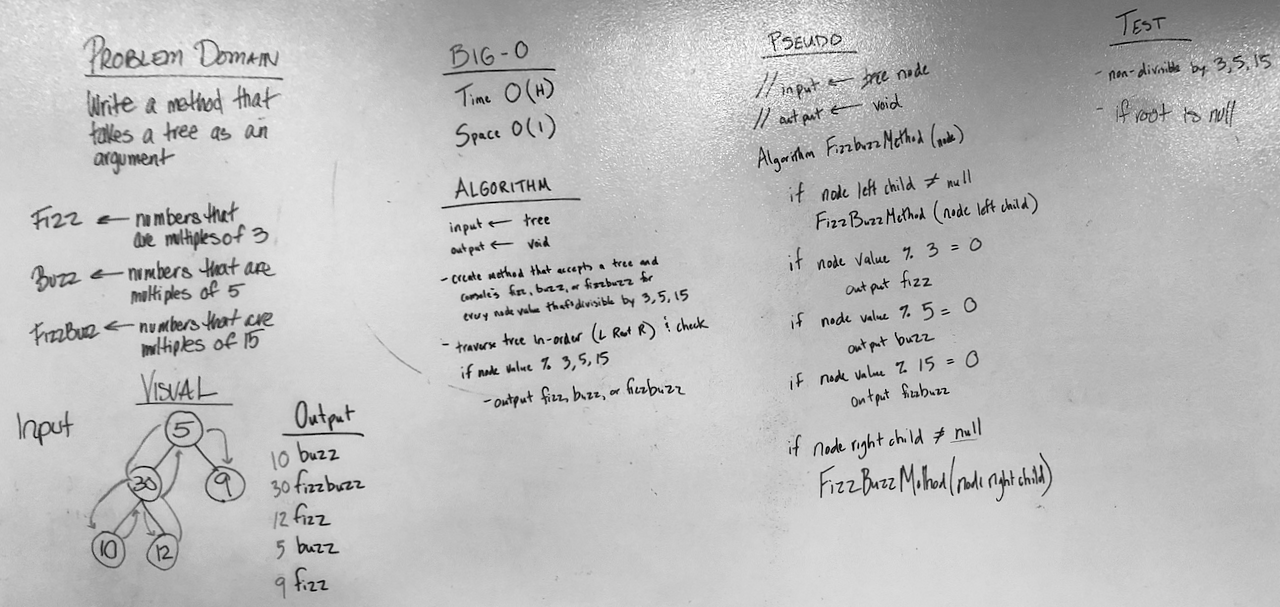 PROBLEM DOMAIN
Write a method that
takes a tree as an
argument
FIZZ ← numbers that
are multiples of 3
BUZZ ← numbers that are
multiples of 5
FIZZBUZZ ← numbers that are
multiples of 15
VISUAL
Input
5
30
9
10
12
Output
10 buzz
30 fizzbuzz
12 fizz
5 buzz
9 fizz
BIG-O
Time O(H)
Space O(1)
ALGORITHM
input ← tree
output ← void
- create method that accepts a tree and
console's fizz, buzz, or fizzbuzz for
every node value that's divisible by 3, 5, 15
- traverse tree in-order (L Root R) & check
if node value % 3, 5, 15
- output fizz, buzz, or fizzbuzz
PSEUDO
// input ← tree node
// output ← void
Algorithm FizzbuzzMethod (node)
if node left child ≠ null
FizzBuzzMethod (node left child)
if node value % 3 = 0
output fizz
if node value % 5 = 0
output buzz
if node value % 15 = 0
output fizzbuzz
if node right child ≠ null
FizzBuzzMethod (node right child)
TEST
- non-divisible by 3, 5, 15
- if root is null